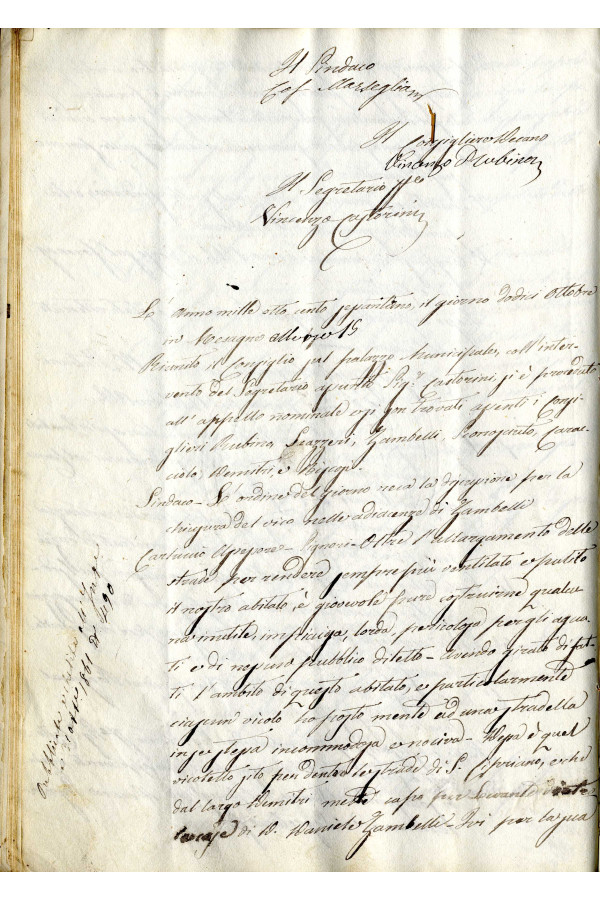 Il Sindaco
Caf Marseglia
Il Consigliero Decano
Vincenzo Rubino
Il Segretario
Vincenzo Castorini
L'anno mille otto cento settantuno, il giorno dodici Ottobre
in Mesagne alle ore 15
Riunito il Consiglio nel palazzo Municipale, coll'inter-
vento del Segretario Sig. Castorini si è proceduto
all'appello nominale e si son trovati assenti i Consi-
glieri Rubino, Scazzeri, Zambelli, Caval-
ciolo, Demitri, e
Sindaco - L'ordine del giorno reca la discussione per la
chiusura del vico nelle adiacenze di Zambelli
Carluccio Assessore - Signori - Oltre l'allargamento delle
strade per rendere sempre più ventilato e pulito
il nostro abitato, è giovevole pure costruirne qualcu-
na inutile, lorda, pericolosa per gli agua-
ti e di nessuno pubblico diletto - avendo girato di fat-
ti l'ambito di questo abitato, e particolarmente
ciascun vicolo ho posto mente ad una stradella
in se stessa incommoda e nociva - Essa è quel
vicoletto sito fra le strade di S. Cipriano, e che
dal largo Demitri mette capo per
le case di D. Daniele Zambelli - Ivi per la sua
Pubblicata
1871
490